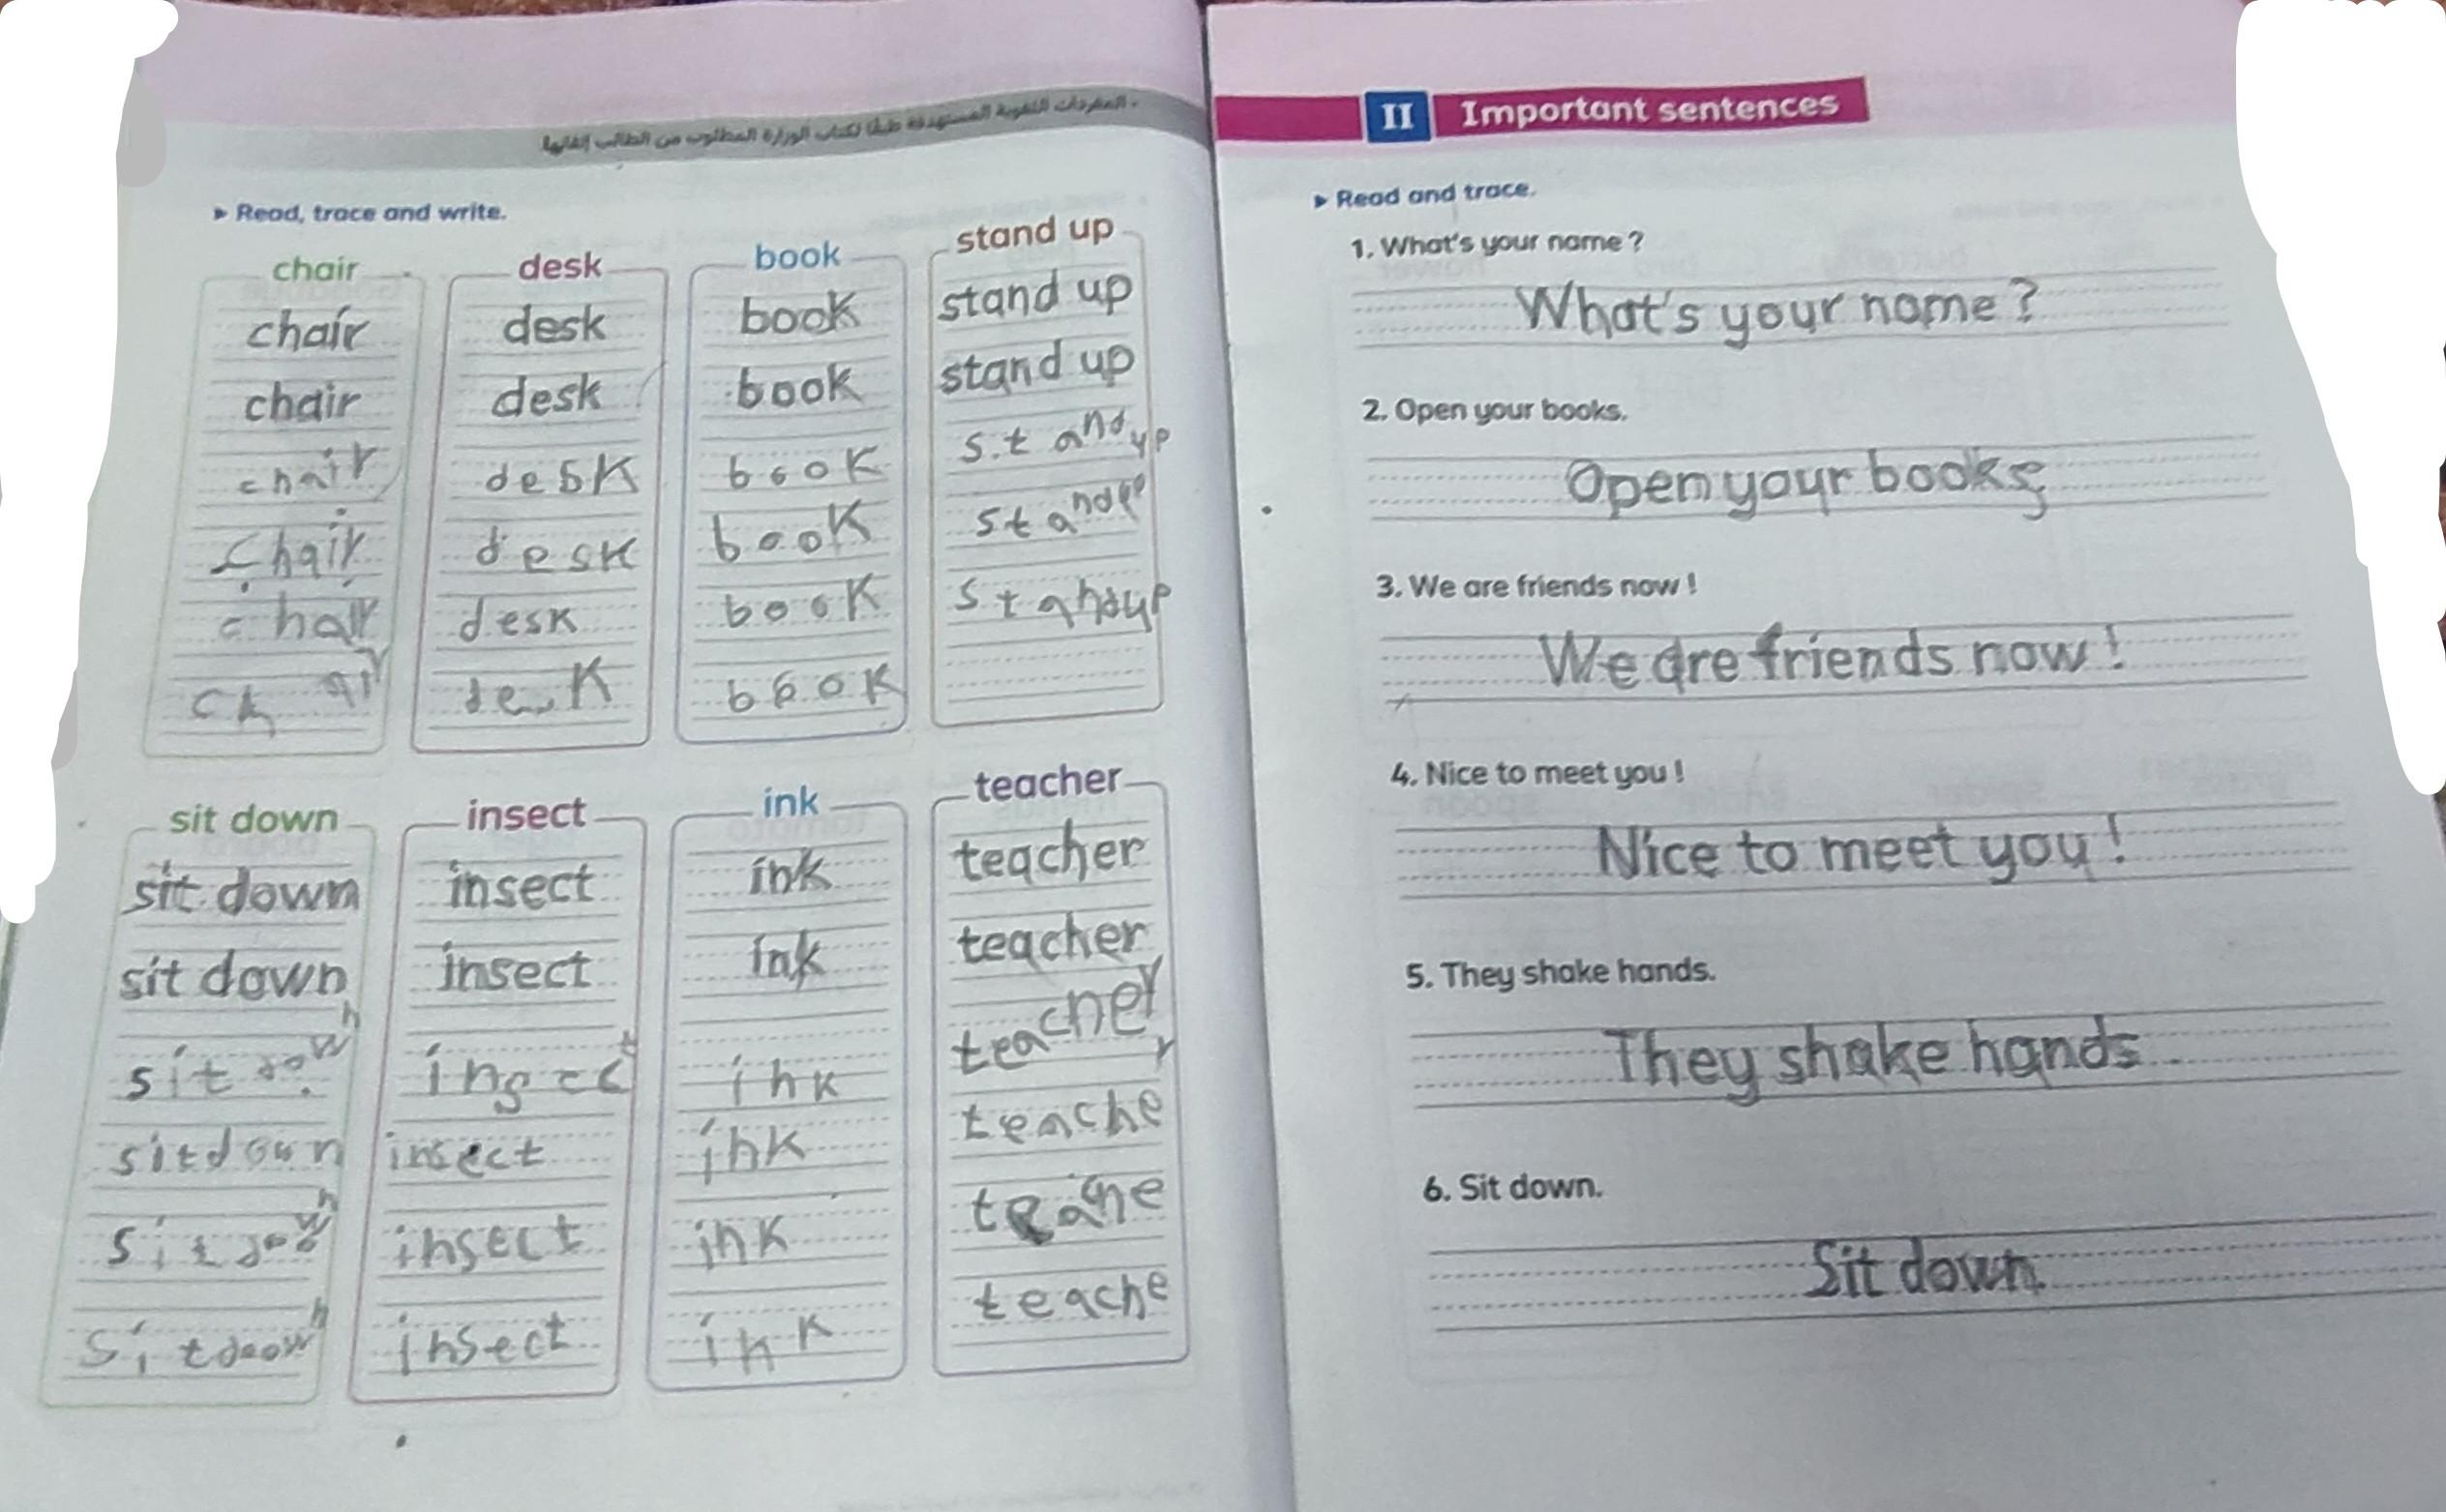 - المفردات اللغوية المستهدفة طبقًا لكتاب الوزارة المطلوب من الطالب إتقانها
▶ Read, trace and write.
chair
chair
chair
chair
chair
chair
ch air
desk
desk
desk
desk
desk
desk
desk
book
book
book
book
book
book
book
stand up
stand up
stand up
stand up
stand up
sit down
sit down
sit down
sit down
sitdown
sit down
insect
insect
insect
insect
insect
insect
insect
ink
ink
ink
ink
ink
ink
ink
teacher
teacher
teacher
teacher
teacher
teache
II Important sentences
▶ Read and trace.
1. What's your name?
What's your name?
2. Open your books.
Open your books.
3. We are friends now!
We are friends now!
4. Nice to meet you!
Nice to meet you!
5. They shake hands.
They shake hands.
6. Sit down.
Sit down.